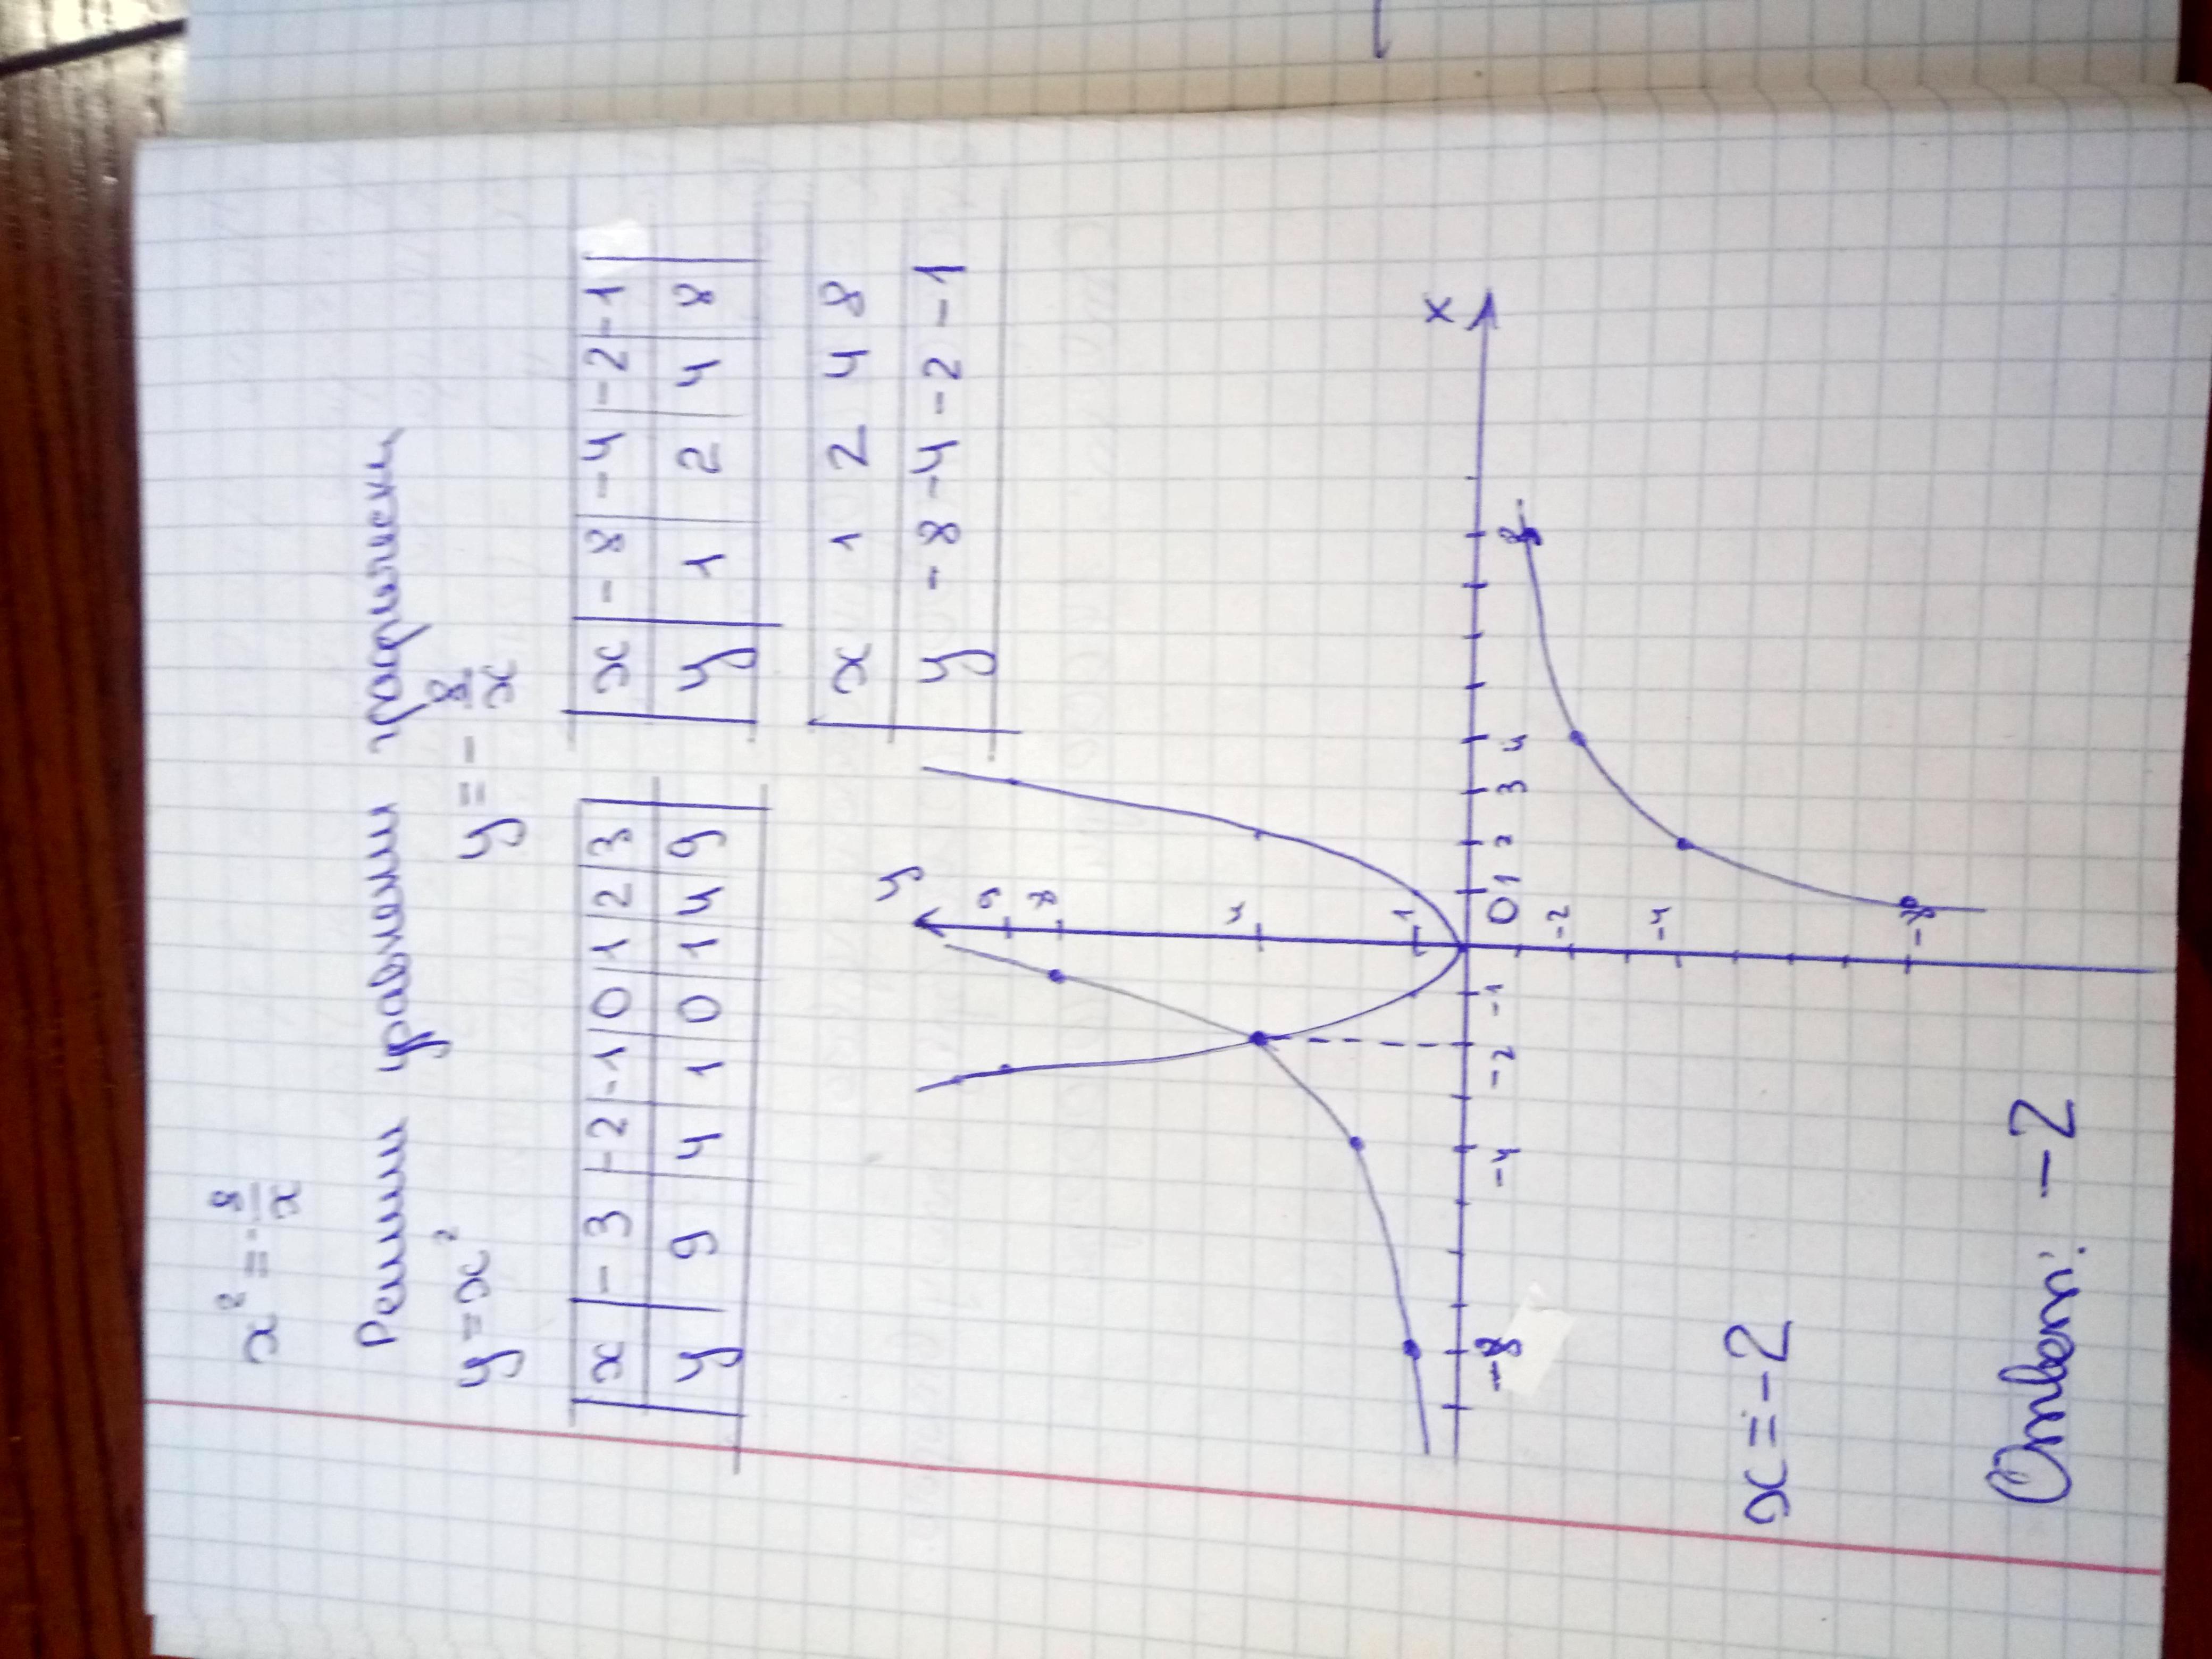 x² = -8/x
Решим уравнение графически
y = x² y = - 8/x
x -3 -2 -1 0 1 2 3
y 9 4 1 0 1 4 9
x -8 -4 -2 -1
y 1 2 4 8
x 1 2 4 8
y -8 -4 -2 -1
y
9
8
4
1
x
-8 -4 -2 -1 0 1 2 3 4 8
-2
-4
-8
x = -2
Ответ: -2